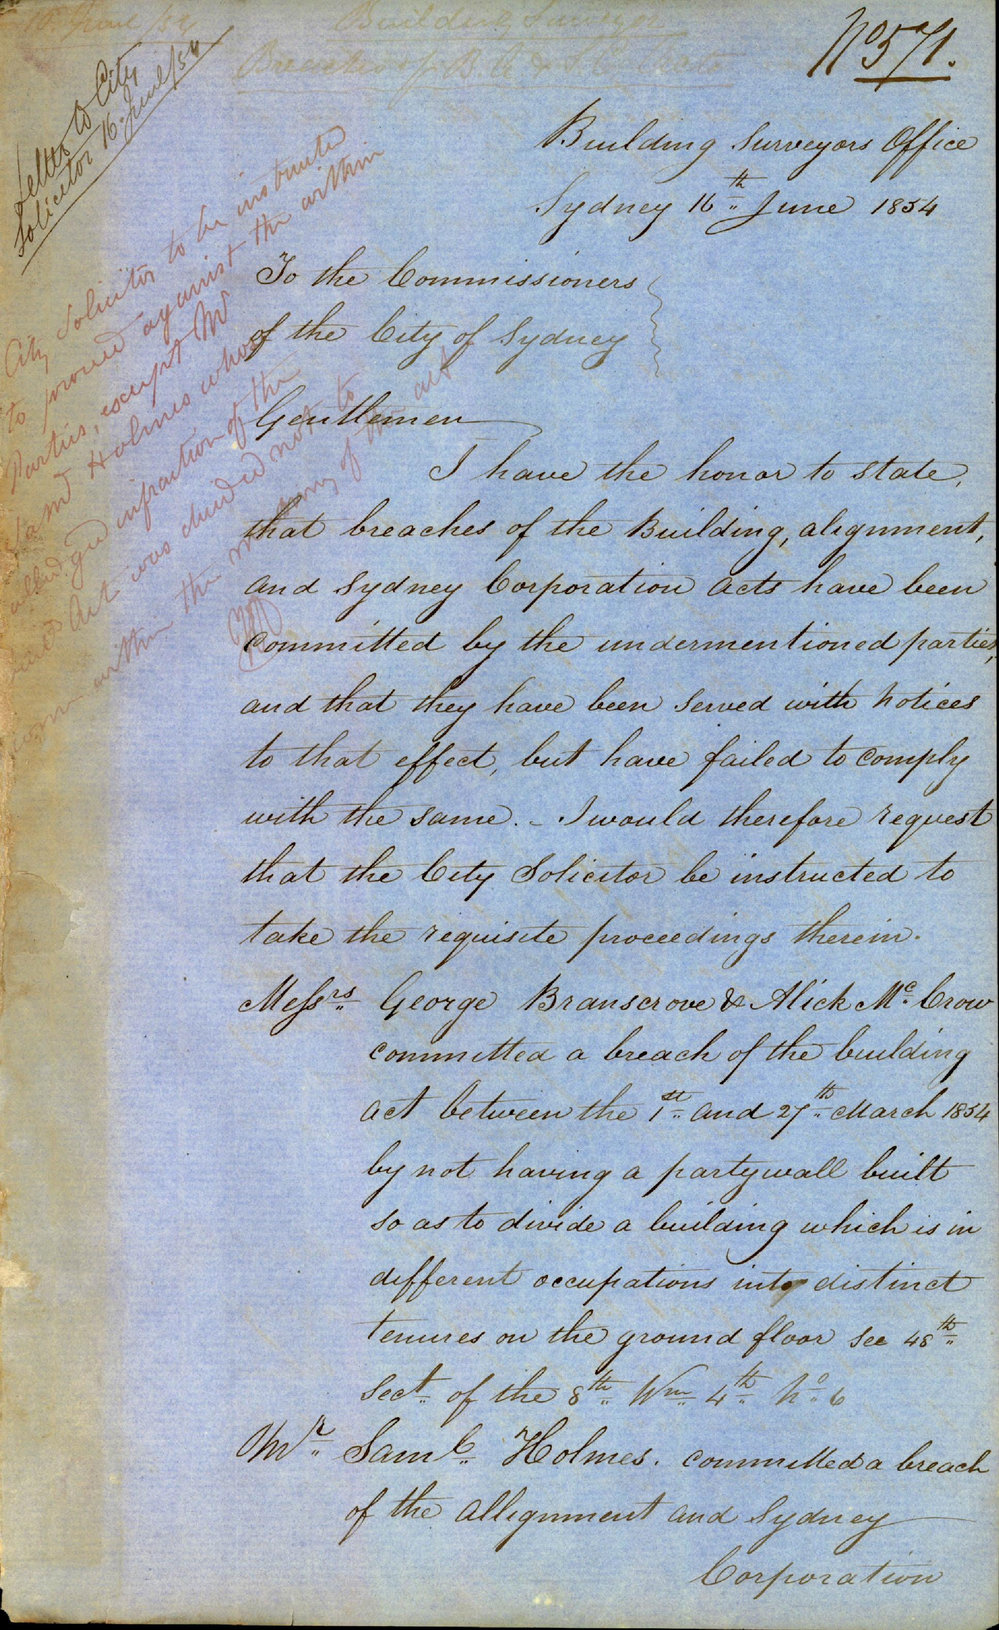 No 571.
Letter to City
Solicitor 16 June/54
Building Surveyors Office
Sydney 16th June 1854
To the Commissioners
of the City of Sydney
City Solicitor to be instructed
to proceed against the within
Parties, except Mr
Saml Holmes whose
alledged infraction of the
Act was deemed not to
come within the meaning of the act
Gentlemen
I have the honor to state,
that breaches of the Building, alignment,
and Sydney Corporation acts have been
committed by the undermentioned parties,
and that they have been served with notices
to that effect, but have failed to comply
with the same. - I would therefore request
that the City Solicitor be instructed to
take the requisite proceedings therein.
Messrs George Branscrove & Alick Mc Crow
committed a breach of the building
act between the 1st and 27th March 1854
by not having a partywall built
so as to divide a building which is in
different occupations into distinct
tenures on the ground floor see 48th
Sect of the 8th Wm 4th No 6
Mr Saml Holmes. committed a breach
of the allignment and Sydney
Corporation